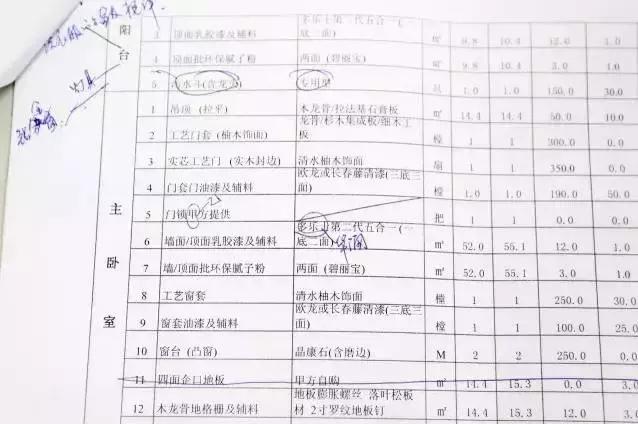 阳台
3 顶面乳胶漆及辅料 多乐士第二代五合一(一底二面) ㎡ 9.8 10.4 12.0 1.0
4 顶面批环保腻子粉 两面 (碧丽宝) ㎡ 9.8 10.4 3.0 1.0
灯具
5 污水斗(含龙头) 专用型 只 1.0 1.0 150.0 30.0
主卧室
1 吊顶 (拉平) 木龙骨/拉法基石膏板 ㎡ 14.4 14.4 50.0 10.0
2 工艺门套 (柚木饰面) 龙骨/杉木集成板/细木工板 樘 1 300.0 0.0
3 实芯工艺门 (实木封边) 清水柚木饰面 扇 1 350.0 0.0
4 门套门油漆及辅料 欧龙或长春藤清漆(三底三面) 樘 1.0 1.0 190.0 50.0
5 门锁甲方提供 把 1 1 0.0 0.0
6 墙面/顶面乳胶漆及辅料 多乐士第二代五合一(一底二面) ㎡ 52.0 55.1 12.0 1.0
7 墙/顶面批环保腻子粉 两面 (碧丽宝) ㎡ 52.0 55.1 3.0 1.0
8 工艺窗套 清水柚木饰面 樘 1 1 250.0 30.0
9 窗套油漆及辅料 欧龙或长春藤清漆(三底三面) 樘 1 1 100.0 25.0
10 窗台 (凸窗) 晶康石(含磨边) M 2 2 250.0 0.0
11 四面企口地板 甲方自购 ㎡ 14.4 15.3 0.0 3.
12 木龙骨地格栅及辅料 地板膨胀螺丝 落叶松板材 2寸罗纹地板钉 ㎡ 14.4 15.3 12.0 3.